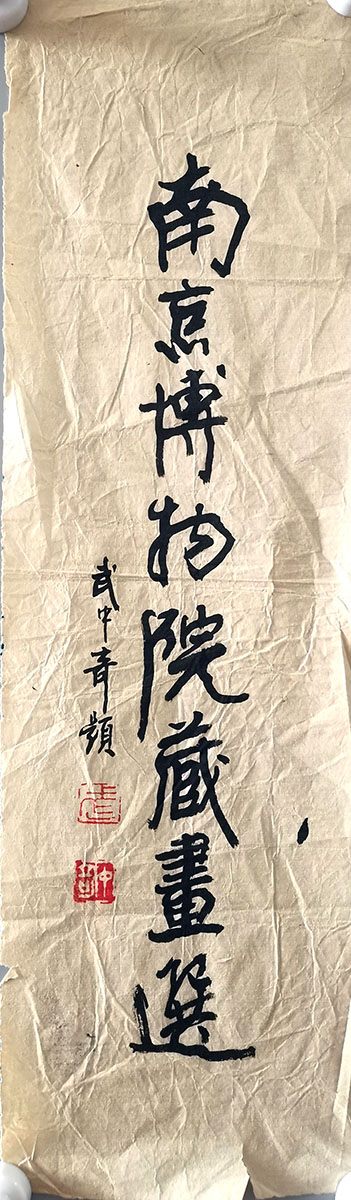 南京博物院藏畫選
武中奇題
武
中奇